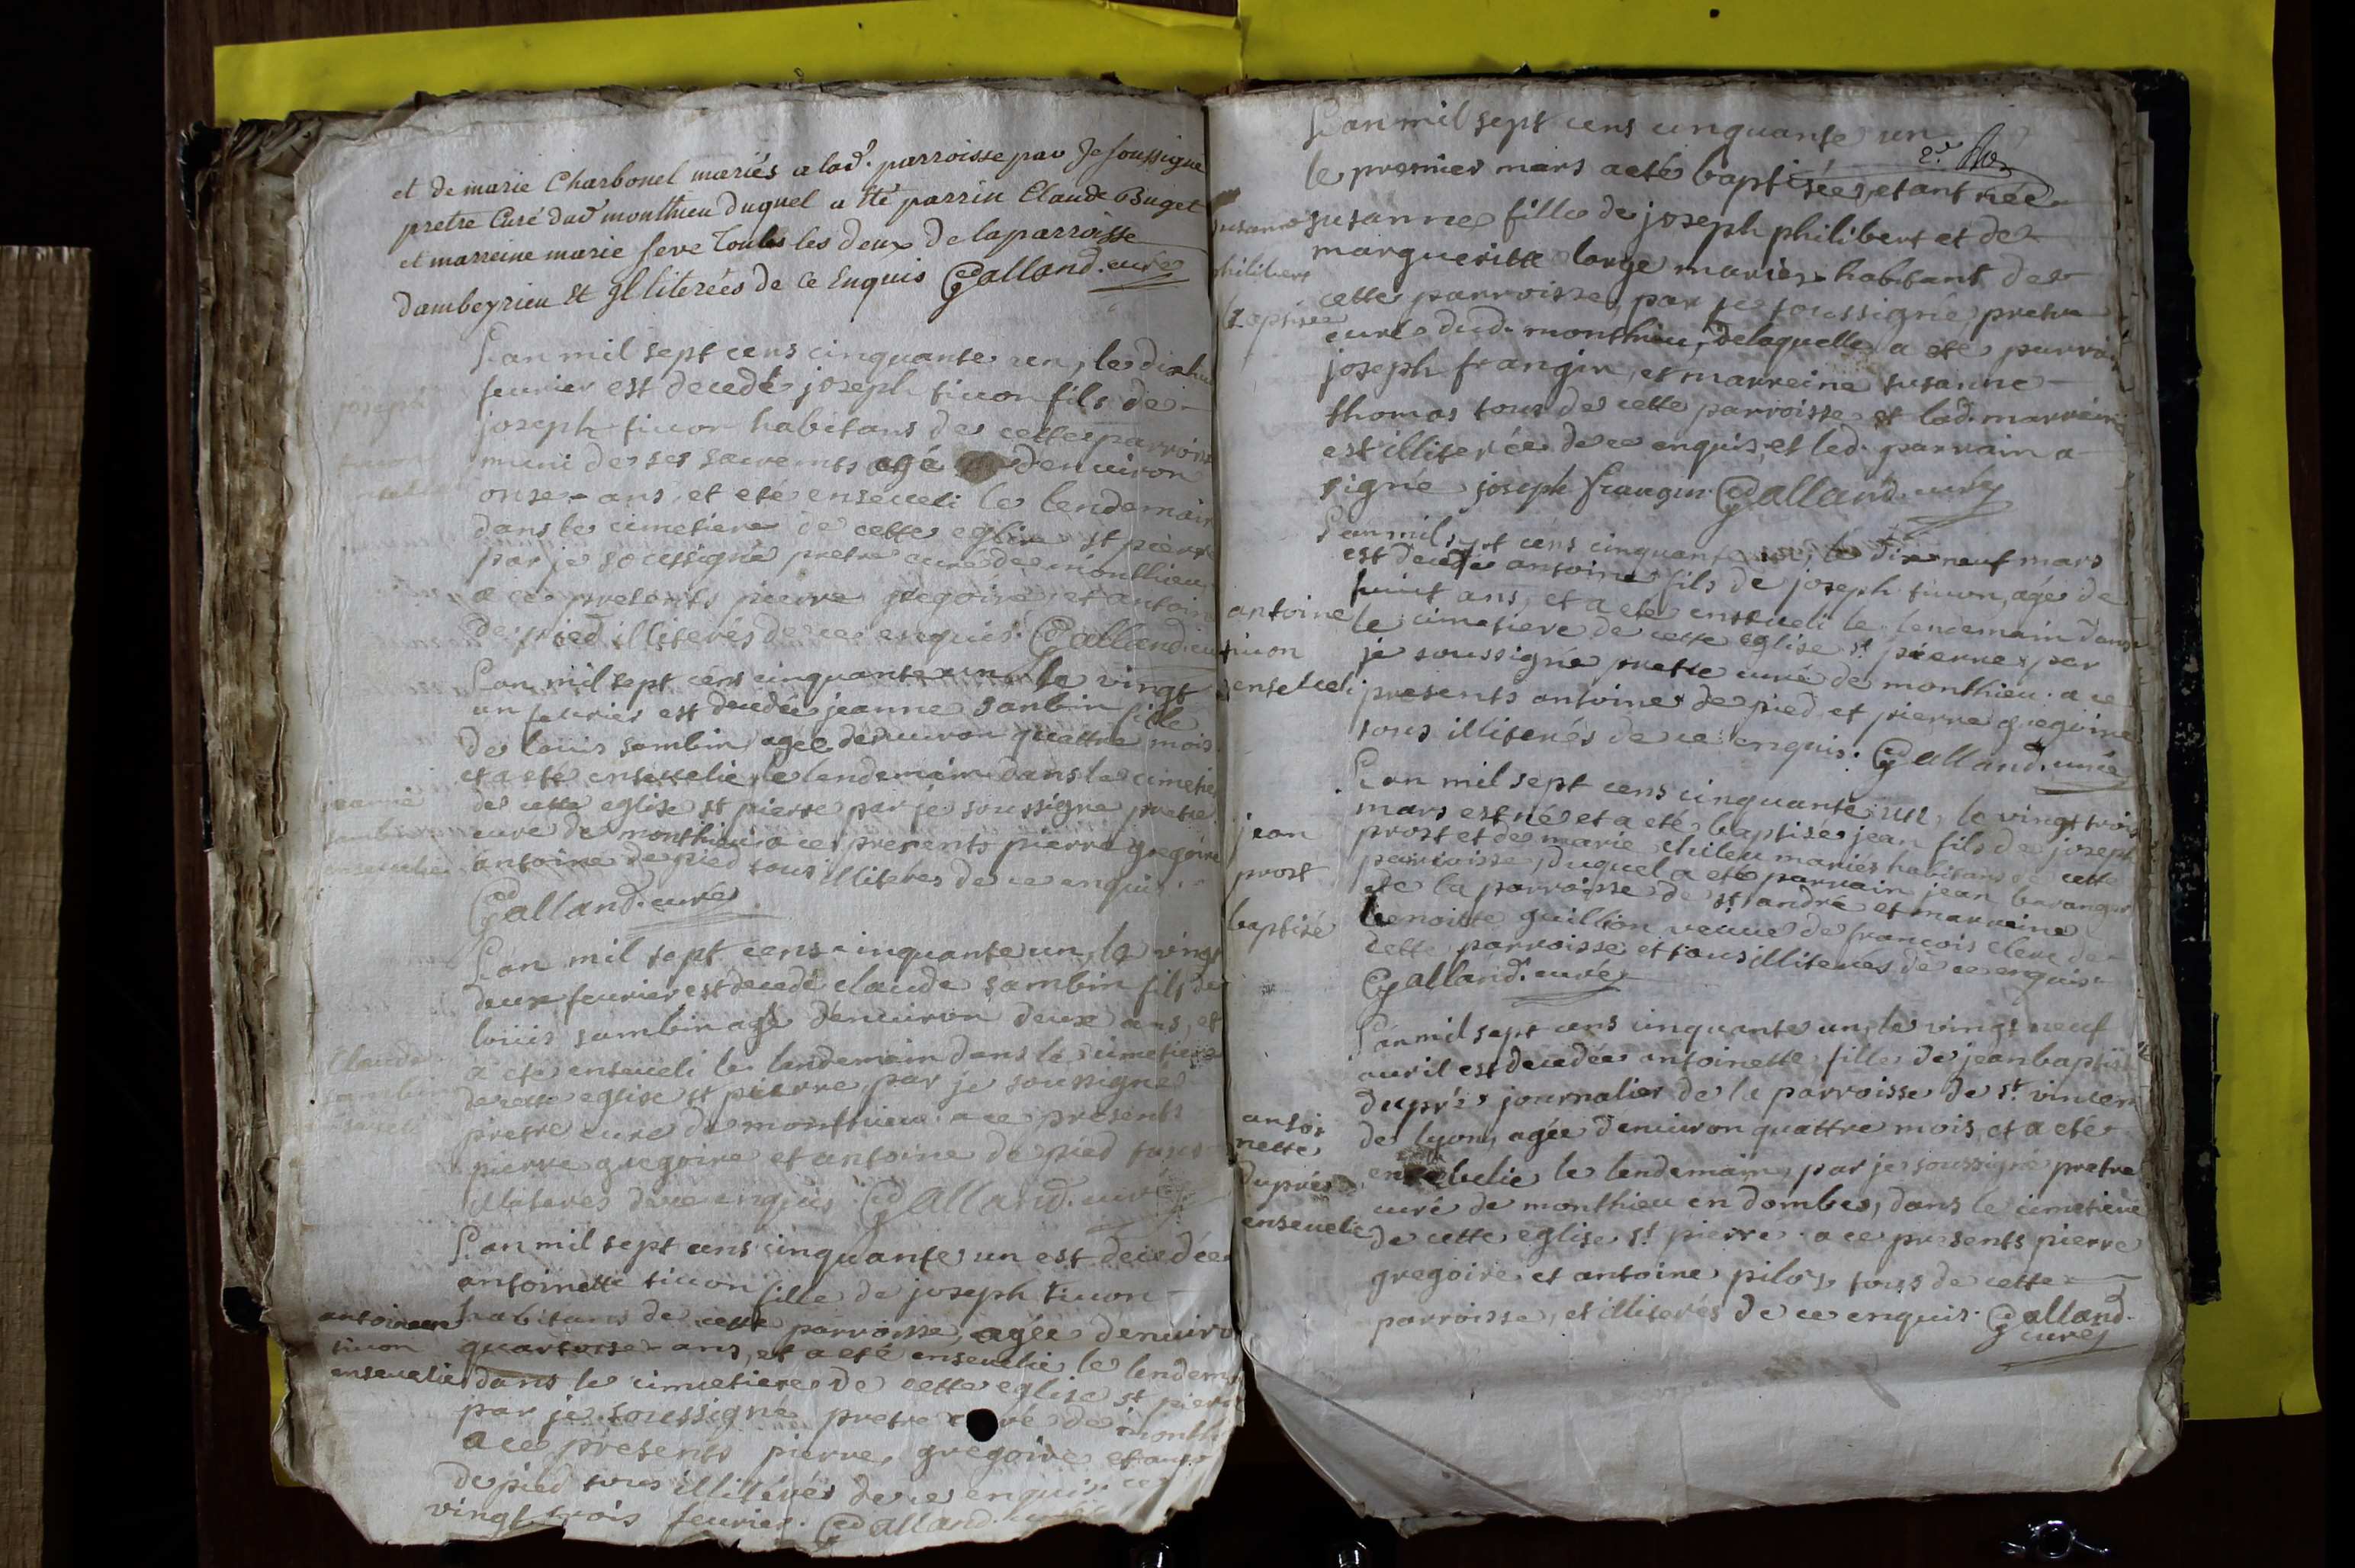 et de marie Charbonel mariés a lad. parroisse par Je soussigne
pretre Curé dud monthieu duquel a Ité parrin Claude Buget
et marreine marie seve Toutes les deux de laparroisse
dambeyrieu et Illiterées de Ce Enquis Galland. curé
L'an mil sept cens cinquante un, le dixhui
feurier est decedé joseph tiuon fils de
joseph tiuon habitans de cette parrois
muni de ses sacremts agé denuiron
onse ans, et eté enseueli le lendemain
dans le cimetiere de cette eglise st pierre
par je soussigné pretre curé de monthieu
a ce presents pierre gregoire et antoin
de pied illiterés de ce enquis. Galland. cu
joseph
tiuon
L'an mil sept cens cinquante un le vingt
un feurier est decedée jeanne sanbin fille
de louis sambin agée denuiron quattre mois.
et a eté enseuelie le lendemain dans le cimetie
de cette eglise st pierre par je soussigné pretre
curé de monthieu a ce presents pierre gregoire
antoine de pied tous illiteres de ce enquis.
Galland. curé
jeanne
sambin
enseuelie
L'an mil sept cens cinquante un, le vingt
deux feurier est decedé claude sambin fils de
louis sambin agé denuiron deux ans, et
a eté enseueli le lendemain dans le cimetiere
de cette eglise st pierre, par je soussigné
pretre curé de monthieu a ce presents
pierre gregoire et antoine de pied tous
illiteres de ce enquis Galland. curé
Claude
sambin
L'an mil sept cens cinquante un est decedée
antoinette tiuon fille de joseph tiuon
habitans de cette parroisse, agée denuiro
quartorse ans, et a eté enseuelie le lendem
dans le cimetiere de cette eglise st pierr
par je soussigné pretre curé de month
a ce presents pierre gregoire et anto
de pied tous illiterés de ce enquis ce
vingt trois feurier. Galland. curé
antoinette
tiuon
enseuelie
L'an mil sept cens cinquante un
le premier mars a eté baptisée, etant née
susanne fille de joseph philibert et de
margueritte large mariés habitant de
cette parroisse, par je soussigné, pretre
curé dud. monthieu, delaquelle a eté parrai
joseph frangin, et marreine susanne
thomas tous de cette parroisse et lad. marreine
est illiterée de ce enquis, et led. parrain a
signé joseph frangin Galland. curé
susanne
philibert
baptisée
L'an mil sept cens cinquante un, le dix neuf mars
est decedé antoine fils de joseph tiuon, agé de
huit ans, et a eté enseueli le lendemain dans
le cimetiere de cette eglise st pierre par
je soussigné pretre curé de monthieu. a ce
presents antoine de pied et pierre gregoire
tous illiterés de ce enquis. Galland. curé
antoine
tiuon
enseueli
L'an mil sept cens cinquante un, le vingt trois
mars est né et a eté baptisé jean fils de joseph
prost et de marie chileu mariés habitans de cette
parroisse, duquel a eté parrain jean beranger
de la parroisse de st andré et marreine
benoitte guillion veuue de francois clere de
cette parroisse et tous illiteres de ce enquis
Galland. curé
jean
prost
baptisé
L'an mil sept cens cinquante un, le vingt neuf
auril est decedée antoinette fille de jean baptiste
dupré journalier de la parroisse de st. vincen
de lyon, agée denuiron quattre mois, et a eté
enseuelie le lendemain, par je soussigné pretre
curé de monthieu en dombes, dans le cimetiere
de cette eglise st pierre. a ce presents pierre
gregoire et antoine pilos tous de cette
parroisse, et illiterés de ce enquis. Galland.
curé
antoi
nette
dupré
enseuelie